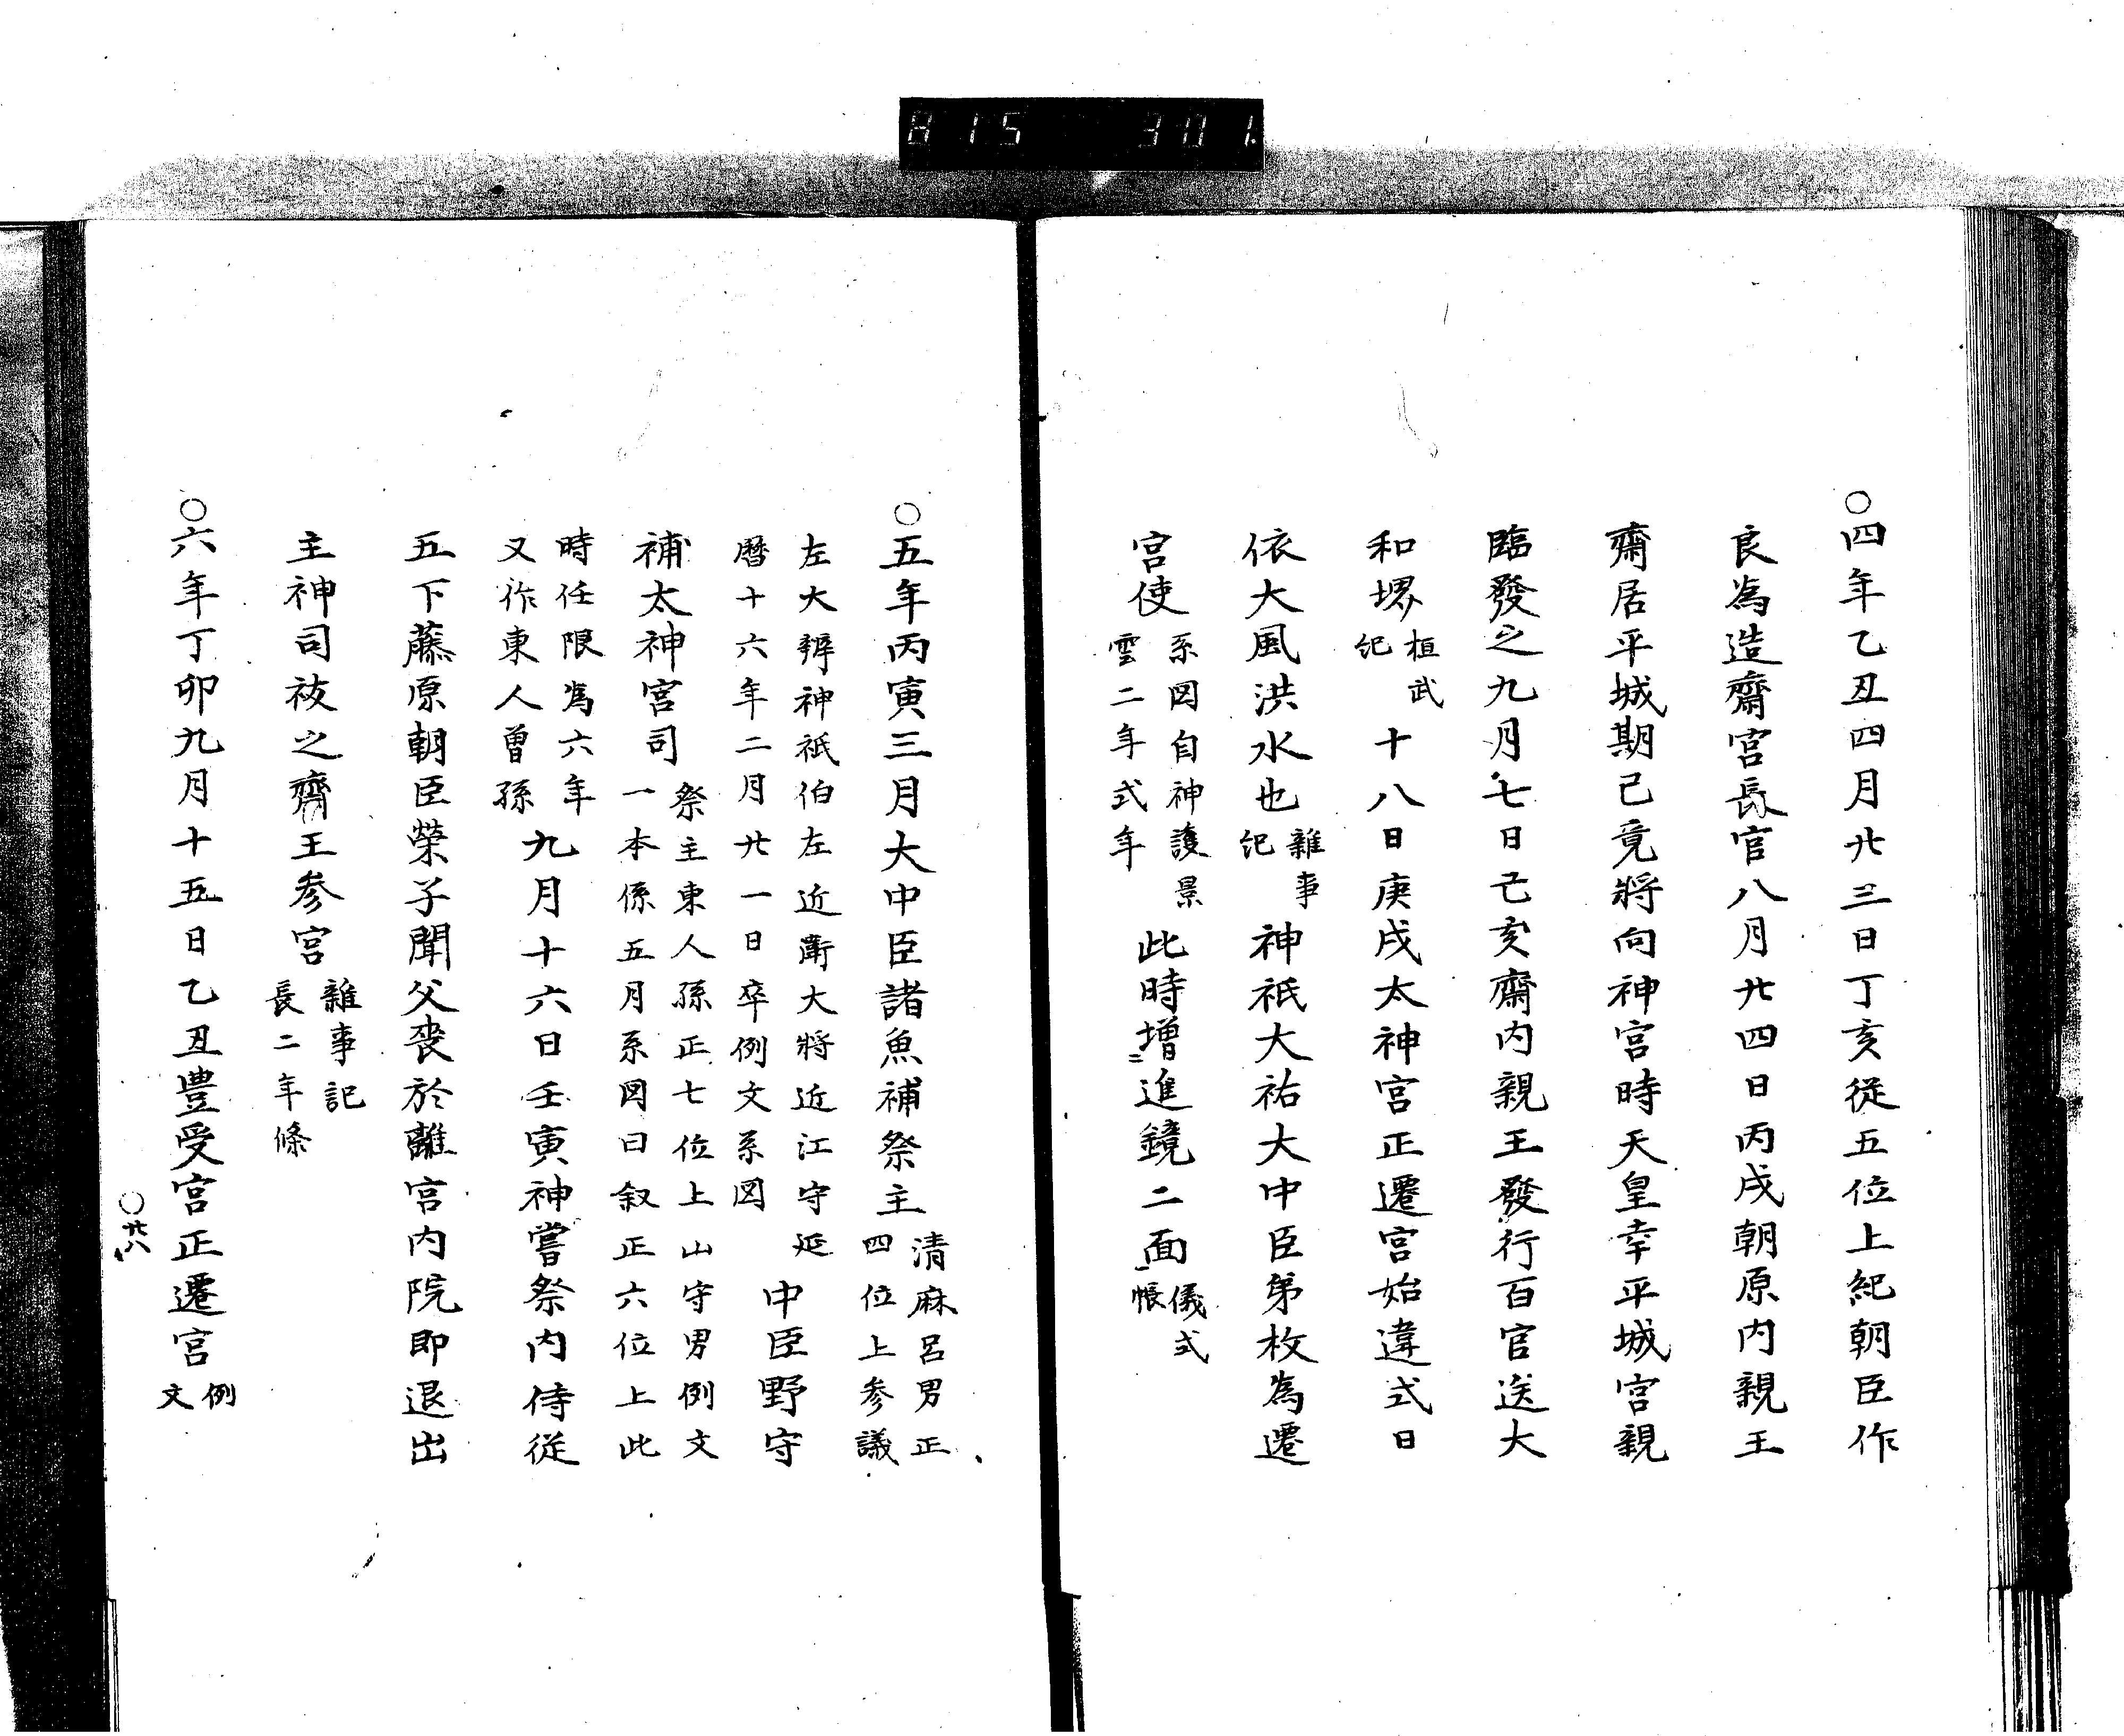 815 301.
○四年乙丑四月廿三日丁亥從五位上紀朝臣作
良為造齋宮長官八月廿四日丙戌朝原内親王
齋居平城期已竟將向神宮時天皇幸平城宮親
臨發之九月七日己亥齋内親王發行百官送大
和堺桓武紀十八日庚戌太神宮正遷宮始違式日
依大風洪水也雜事記神祇大祐大中臣弟枚為遷
宮使系図自神護景雲二年式年此時増進鏡二面儀式帳
○五年丙寅三月大中臣諸魚補祭主清麻呂男正四位上参議
左大辨神祇伯左近衛大将近江守延暦十六年二月廿一日卒例文系図中臣野守
補太神宮司祭主東人孫正七位上山守男例文一本係五月系図曰叙正六位上此
時任限為六年又作東人曽孫九月十六日壬寅神嘗祭内侍從
五下藤原朝臣榮子聞父喪於離宮内院即退出
主神司祓之齋王参宮雜事記長二年條
○六年丁卯九月十五日乙丑豊受宮正遷宮例文
○廿八